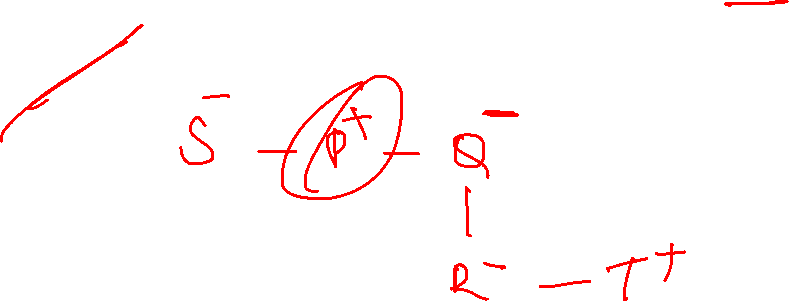 S⁻ — P⁺ — Q⁻
|
R⁻ — T⁺